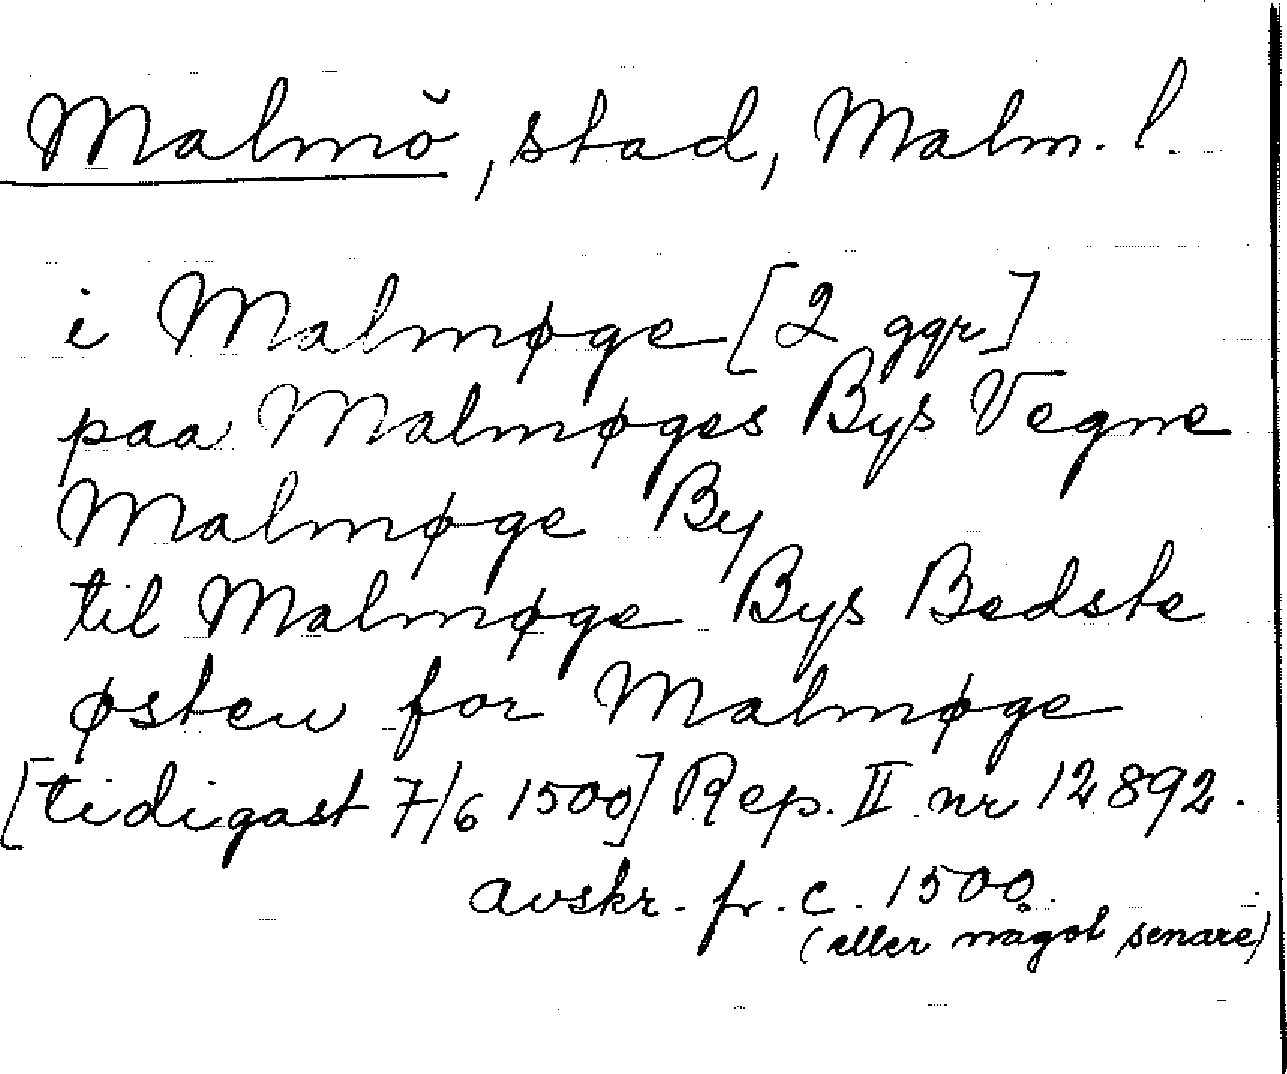 Malmö, stad, Malm. l.
i Malmøge [2 ggr]
paa Malmøges Bys Vegne
Malmøge By
til Malmøge Bys Bedste
østen for Malmøge
[tidigast 7/6 1500] Rep. II nr 12892.
avskr. fr. c. 1500.
(eller något senare)